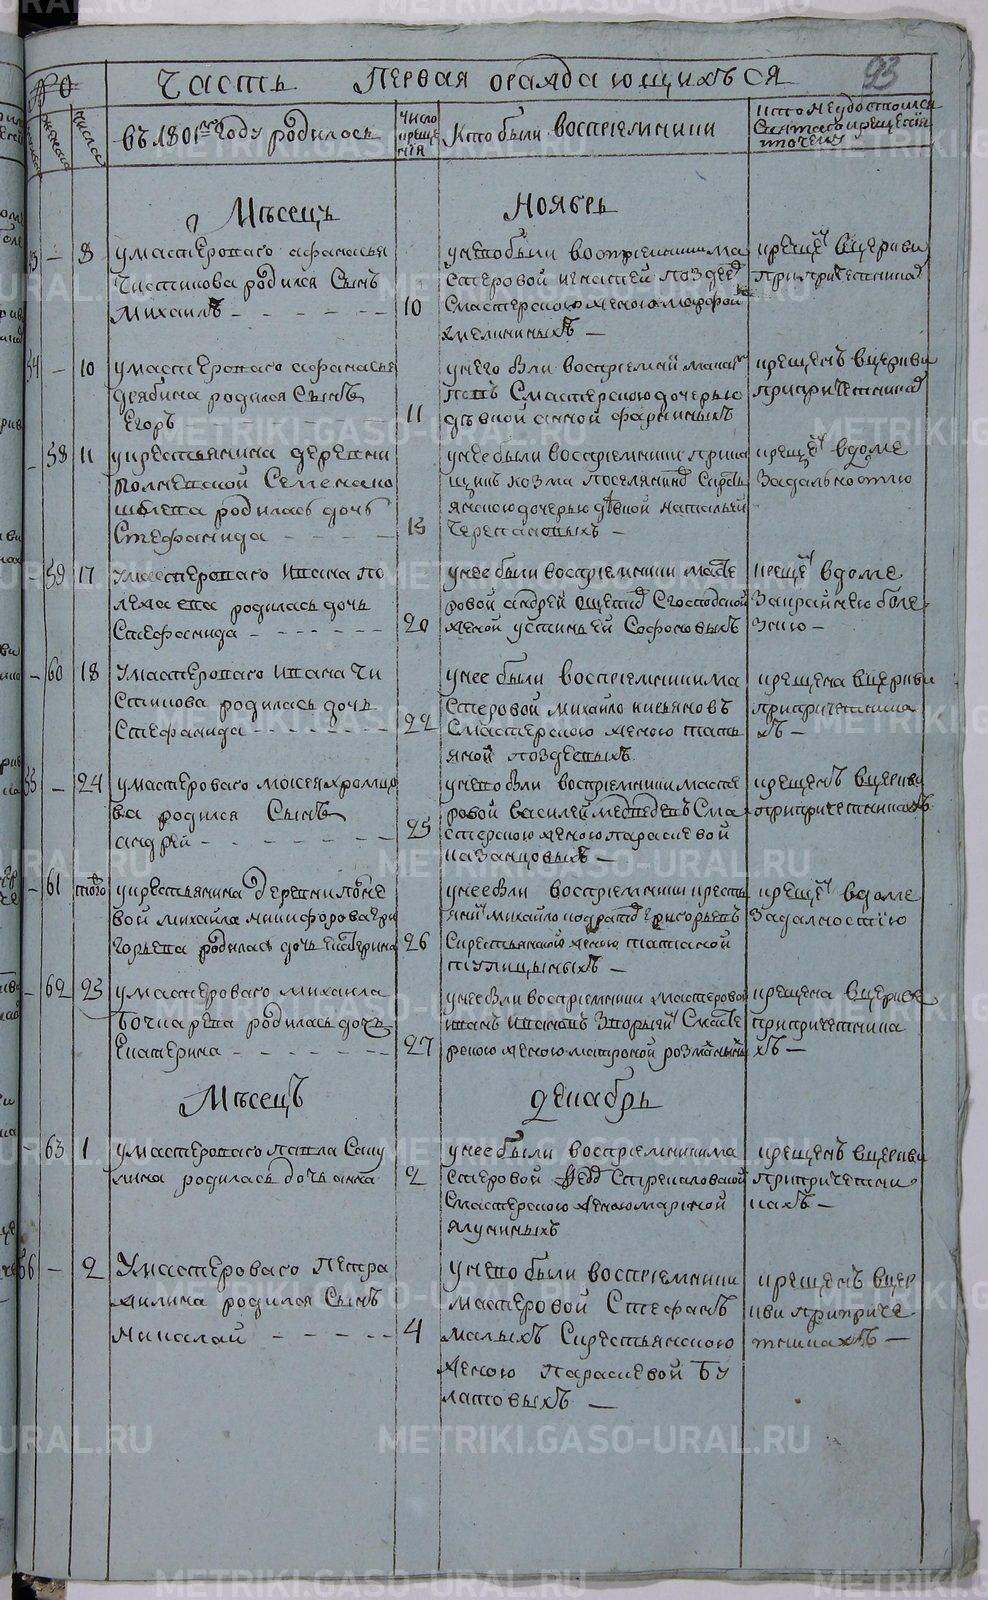 93
Часть Первая ораждающихъся
въ 1801мъ году родилось
Число крещения
Кто были восприемники
Кто неудостоился Святаго крещения ипочему
Месецъ Ноябрь
53 — 8
умастероваго афанасья
Чистикова родился Сынъ
Михаилъ 10
унего были восприемники ма
стеровой игнатей поздеев
Смастерскою женою марфой
хмелининыхъ —
крещен вцеркви
Припричетниках
54 — 10
умастероваго афанасья
деябина родился Сынъ
Егоръ 11
попъ Смастерскою дочерью
девкой анной
крещенъ вцеркви
припричетниках
— 58 11
укрестьянина деревни
полневской Семена ко
шелева родилась дочь
Стефанида 13
унее были восприемники прика
щикъ козма поселянинов Скресть
янскою дочерью девкой натальей
Черепановыхъ —
крещен вдоме
Задальностию
— 59 17
Умастероваго Ивана по
лежаева родилась дочь
Стефанида 20
унее были восприемники масте
ровой андрей ощепков Сгосподской
женой устиньей Софоновыхъ
крещен вдоме
Закрайнею боле
знию —
— 60 18
Умастероваго Ивана Чи
стикова родилась дочь
Стефанида 22
унее были восприемники ма
стеровой михайло кирьяновъ
Смастерскою женою тать
яной поздеевыхъ
крещена вцеркви
припричетника
хъ —
55 — 24
умастероваго моисея хромцо
ва родился Сынъ
андрей 25
унего были восприемники масте
ровой василей медведевъ Сма
стерскою женою парасковой
казанцовыхъ —
крещенъ вцеркви
припричетникахъ
— 61 того
укрестьянина деревни полне
вой михайла никифорова гри
горьева родилась дочь екатерина 26
унее были восприемники кресть
янин михайло кодратов григорьевъ
Скрестьянской женою татианой
тупицыныхъ —
крещен вдоме
Задалностию
— 62 25
умастероваго михаила
Бочкарева родилась дочь
Екатерина 27
унее были восприемники мастеровой
иванъ ивановъ Зторыгин Смасте
рскою женою матроной
крещена вцеркве
припричетника
хъ —
Месецъ декабрь
— 63 1
умастероваго павла Саку
лина родилась дочь анна 2
унее были восприемники ма
стеровой Стрекаловской
Смастерскою женою мариной
якуниныхъ
крещенъ вцеркви
припричетни
кахъ —
56 — 2
Умастероваго петра
жилина родился Сынъ
николай 4
унево были восприемники
мастеровой Стефанъ
малыхъ Скрестьянскою
женою парасковой Бу
латовыхъ —
крещенъ вцер
кви приприче
тникахъ —
METRIKI.GASO-URAL.RU